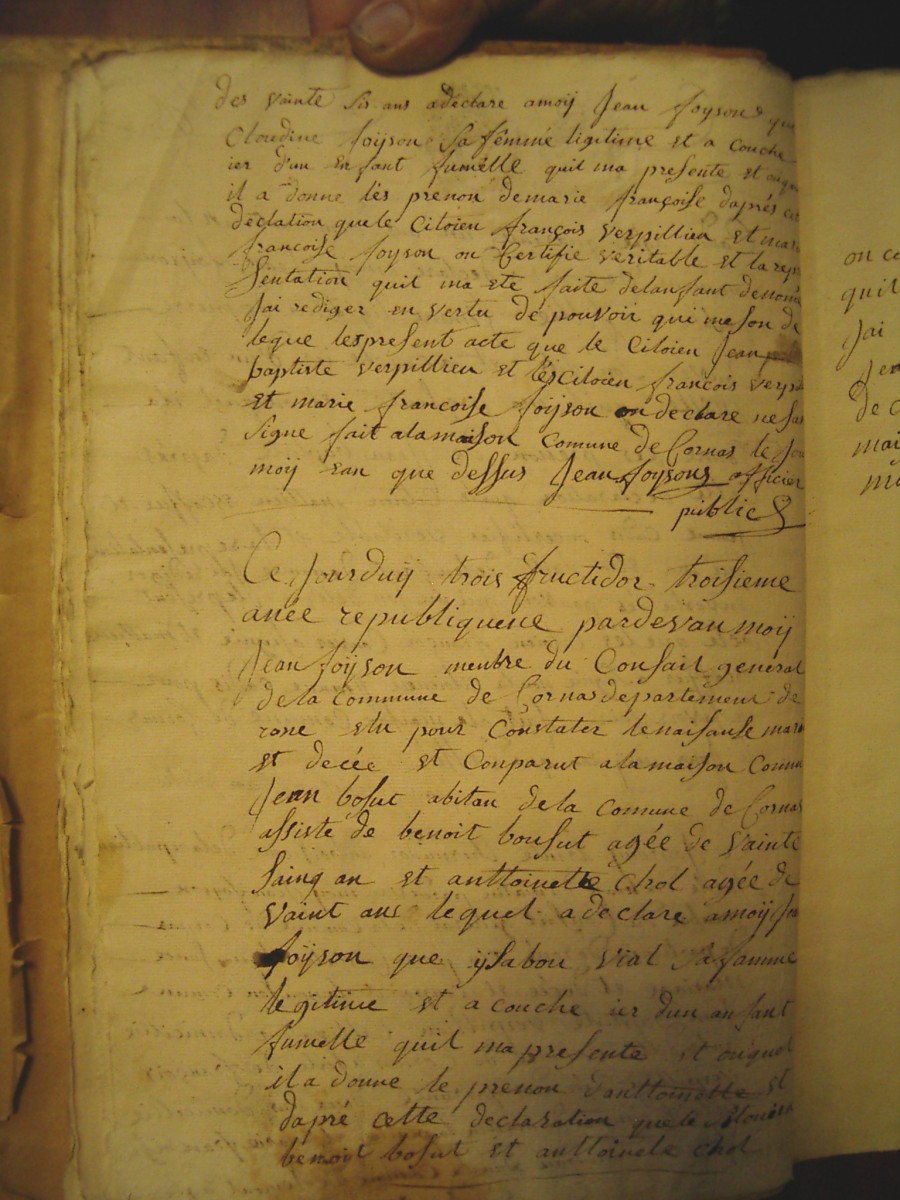 des vainte sis ans adéclare amoÿ Jean foyson que
Cloudine foÿson Sa fêmme ligitime et a couche
ier d'un enfant fumélle quil ma presente et
il a donne lés prenon demarie françoise daprés
déclation que le Citoien françois verpillieu et mari
francoise foyson on Certifie veritable et la repre
sentation quil ma ete faite delanfant denomé
Jai rediger en vertu de pouvoir qui meson de
legue lespresent acte que le Citoien Jean
baptiste verpillieu et lés Citoien françois verpi
et marie francoise foÿson on declare ne sa
signe fait alamaison Comune de Cornas le Jou
moÿ ean que dessus Jean foysons officier
public
Ce Jourduÿ trois fructidor troisieme
anée republiquene pardevan moÿ
Jean foÿson menbre du Consail general
de la Commune de Cornas departement de
rone elu pour Constater lenaisanse mari
et decée et Conparut alamaison Comu
Jean bosut abitan de la Comune de Cornas
assiste de benoit bousut agée de vainte
sainq an et anttoinette chol agée de
vaint ans lequel adeclare amoÿ Jea
foÿson que ÿsabou vial sa famme
legitime et a couche ier dun anfant
fumelle quil ma presente et ouquel
il a donne le prenon danttoinette et
dapré cette declaration que le sitouien
benoit bosut et anttoinete chol
on ce
quil
Jai
Jea
de c
mai